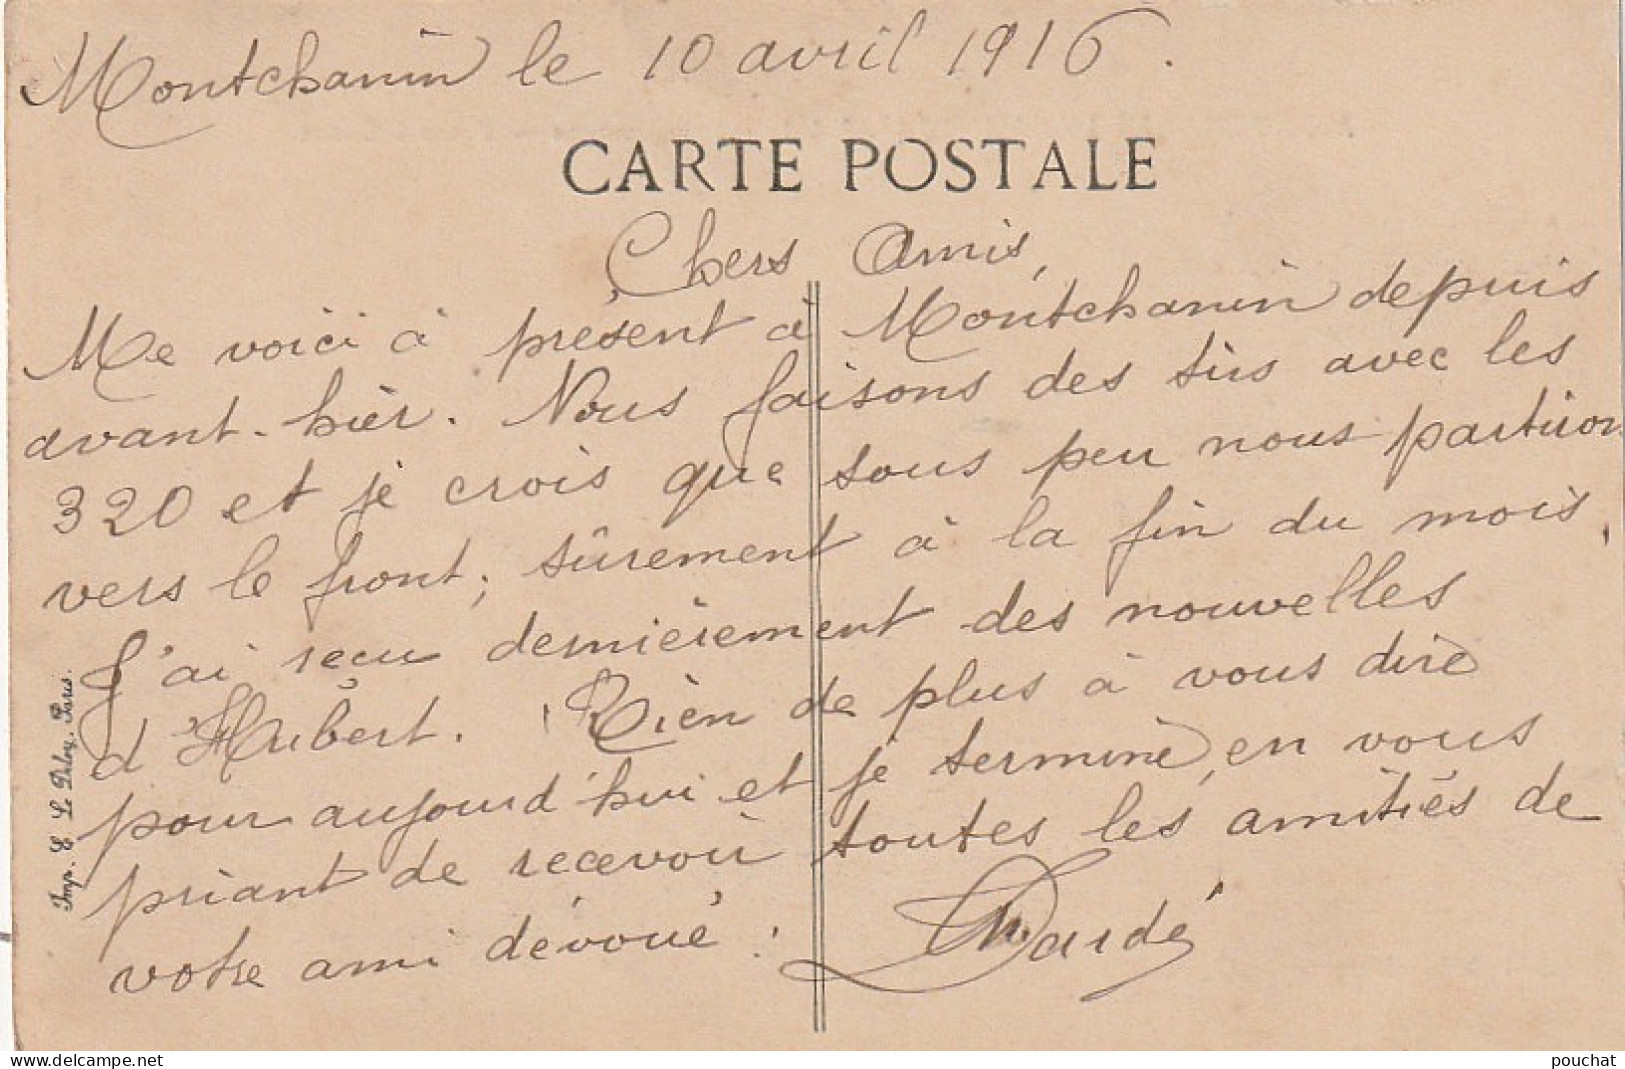 Montchanin le 10 avril 1916.
CARTE POSTALE
Chers Amis,
Me voici à présent à Montchanin depuis
avant-hier. Nous faisons des tirs avec les
320 et je crois que sous peu nous partiron
vers le front; sûrement à la fin du mois.
J'ai reçu dernièrement des nouvelles
d'Hubert. Rien de plus à vous dire
pour aujourd'hui et je termine, en vous
priant de recevoir toutes les amitiés de
votre ami dévoué :
Dardé
Imp. E. Le Deley, Paris.
pouchat